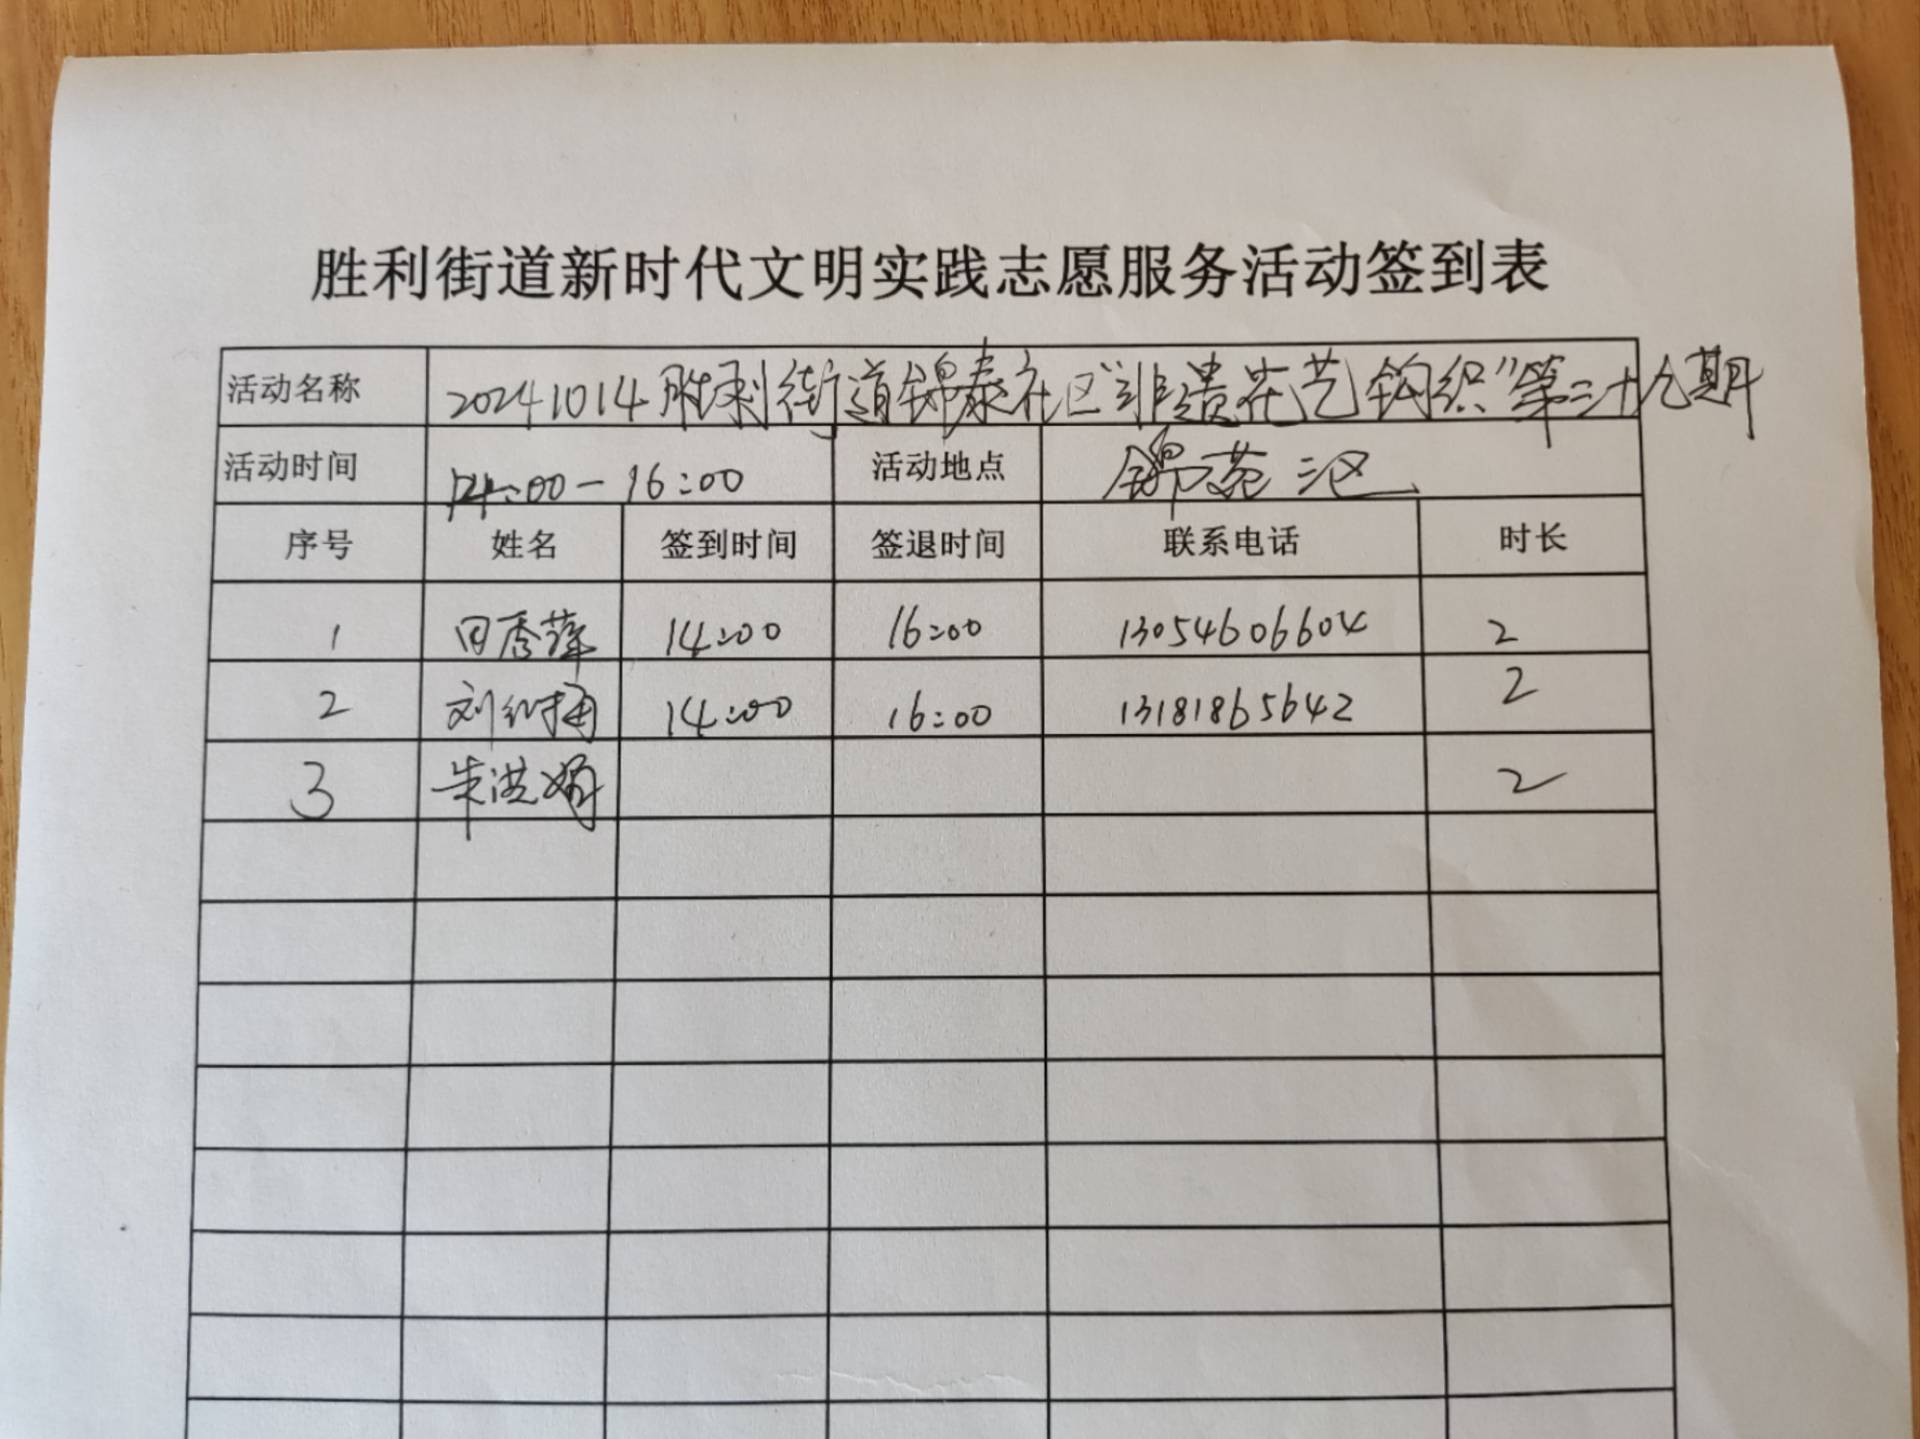 胜利街道新时代文明实践志愿服务活动签到表
活动名称 20241014胜利街道锦泰社区"非遗花艺钩织"第二十九期
活动时间 14:00-16:00 活动地点 锦苑三区
序号 姓名 签到时间 签退时间 联系电话 时长
1 田秀萍 14:00 16:00 13054606604 2
2 刘 14:00 16:00 13181865642 2
3 朱洪娟 2